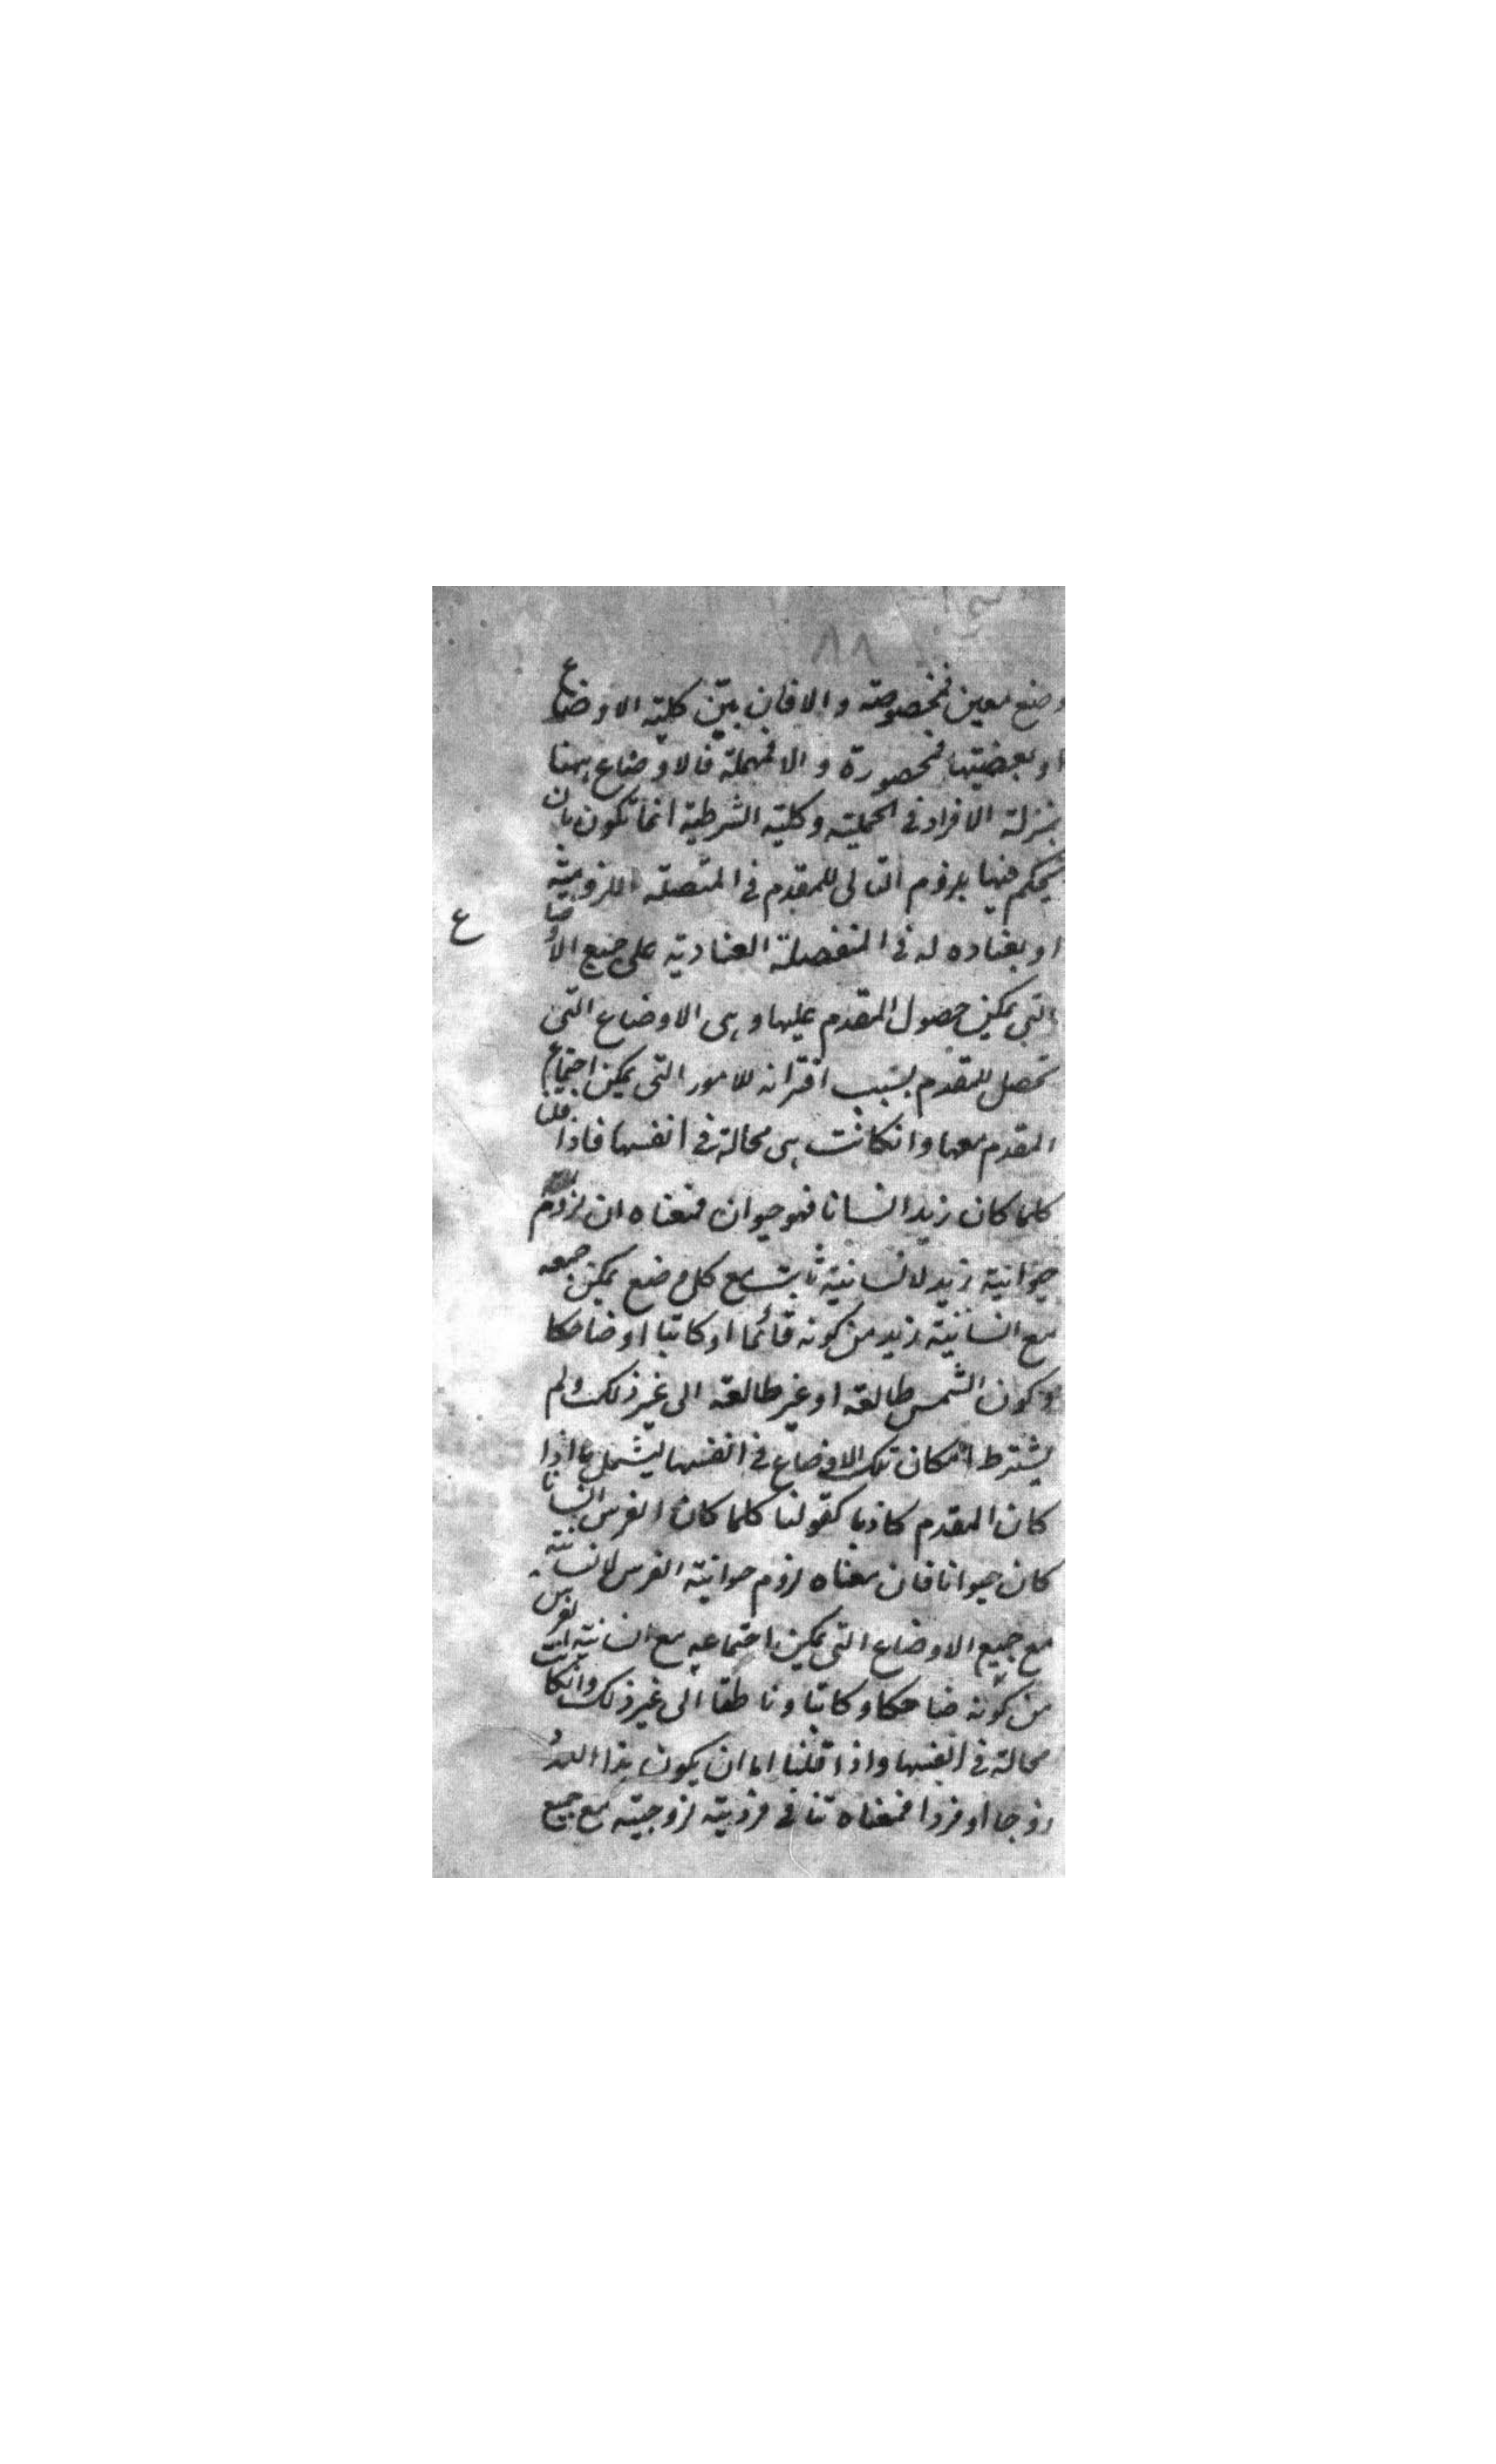 ٨٨
وضع معين فمخصوصة والا فان بيّن كلية الاوضاع
او بعضيتها فمحصورة والا فمهملة فالاوضاع ههنا
بمنزلة الافراد في الحملية وكلية الشرطية انما تكون بان
يحكم فيها بلزوم التالى للمقدم في المتصلة اللزومية
او بعناده له في المنفصلة العنادية على جميع الاوضا
ع
التى يمكن حصول المقدم عليها وهى الاوضاع التى
تحصل للمقدم بسبب اقترانه للامور التى يمكن اجتماع
المقدم معها وانكانت هى محالة في انفسها فاذا قلنا
كلما كان زيد انسانا فهو حيوان فمعناه ان لزوم
حيوانية زيد لانسانية ثابت مع كل وضع يمكن جمعه
مع انسانية زيد من كونه قائما او كاتبا او ضاحكا
وكون الشمس طالعة او غير طالعة الى غير ذلك ولم
يشترط امكان تلك الاوضاع في انفسها ليشمل ما اذا
كان المقدم كاذبا كقولنا كلما كان الفرس انسانا
كان حيوانا فان معناه لزوم حوانية الفرس لانسانيته
مع جميع الاوضاع التى يمكن اجتماعه مع انسانية الفرس
من كونه ضاحكا وكاتبا وناطقا الى غير ذلك وانكانت
محالة في انفسها واذا قلنا اما ان يكون هذا العدد
زوجا او فردا فمعناه تنافى فردية لزوجية مع جميع